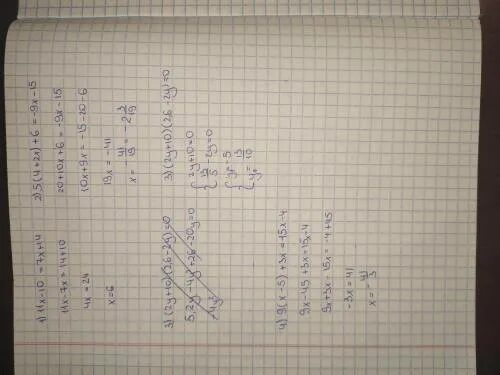 1) 11x-10 = 7x+14
11x-7x = 14+10
4x = 24
x=6
2) 5(4+2x)+6 = -9x-15
20+10x+6 = -9x-15
10x+9x = -15-20-6
19x = -41
x = 41/19 = -2 3/19
3) (2y+10)(2,6-2y)=0
5,2y-4y²+26-20y=0
-4y²
3) (2y+10)(2,6-2y)=0
{ 2y+10=0
{ 13/5 -2y=0
{ y=-5
{ y= 13/10
4) 9(x-5)+3x=15x-4
9x-45+3x=15x-4
9x+3x-15x=-4+45
-3x=41
x=-41/3